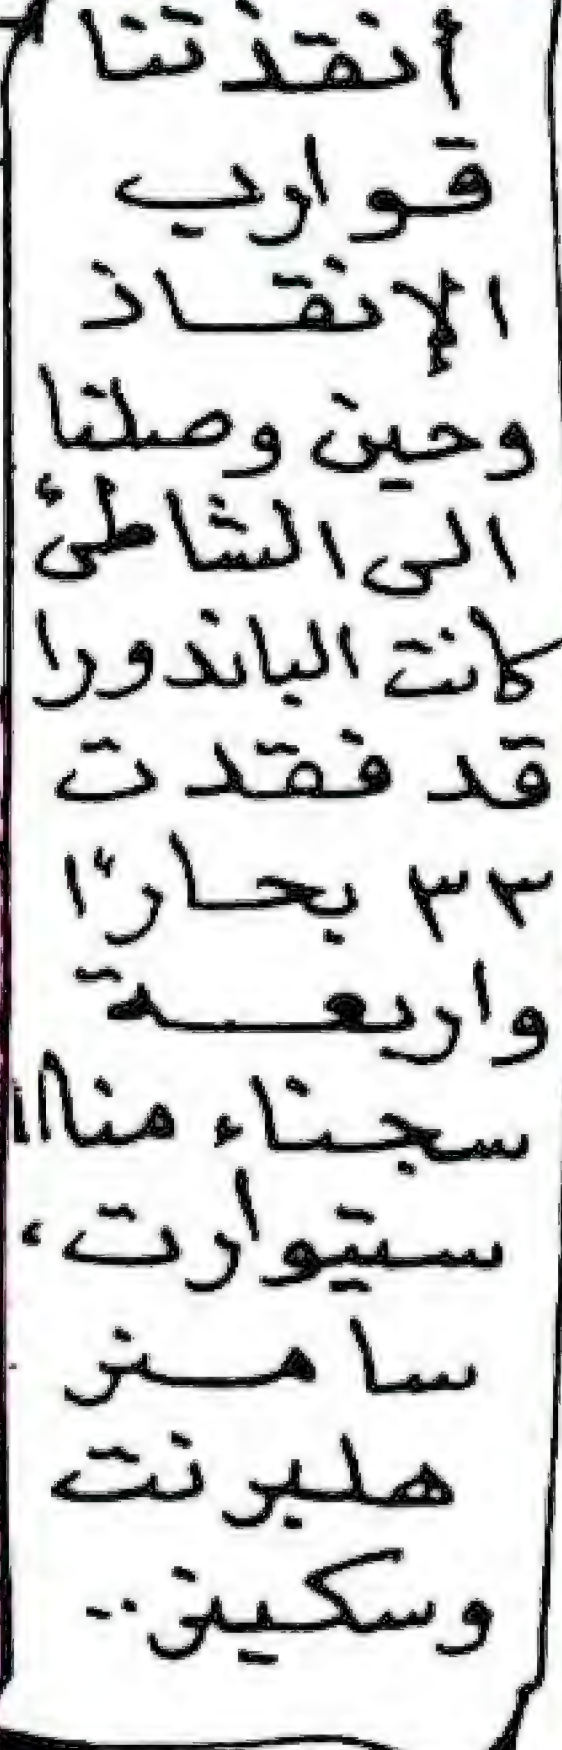 أنقذتنا
قوارب
الإنقاذ
وحين وصلنا
الى الشاطئ
كانت الباندورا
قد فقدت
٣٣ بحارًا
واربعة
سجناء منا!!
ستيوارت،
سامنر
هلبرنت
وسكينر..